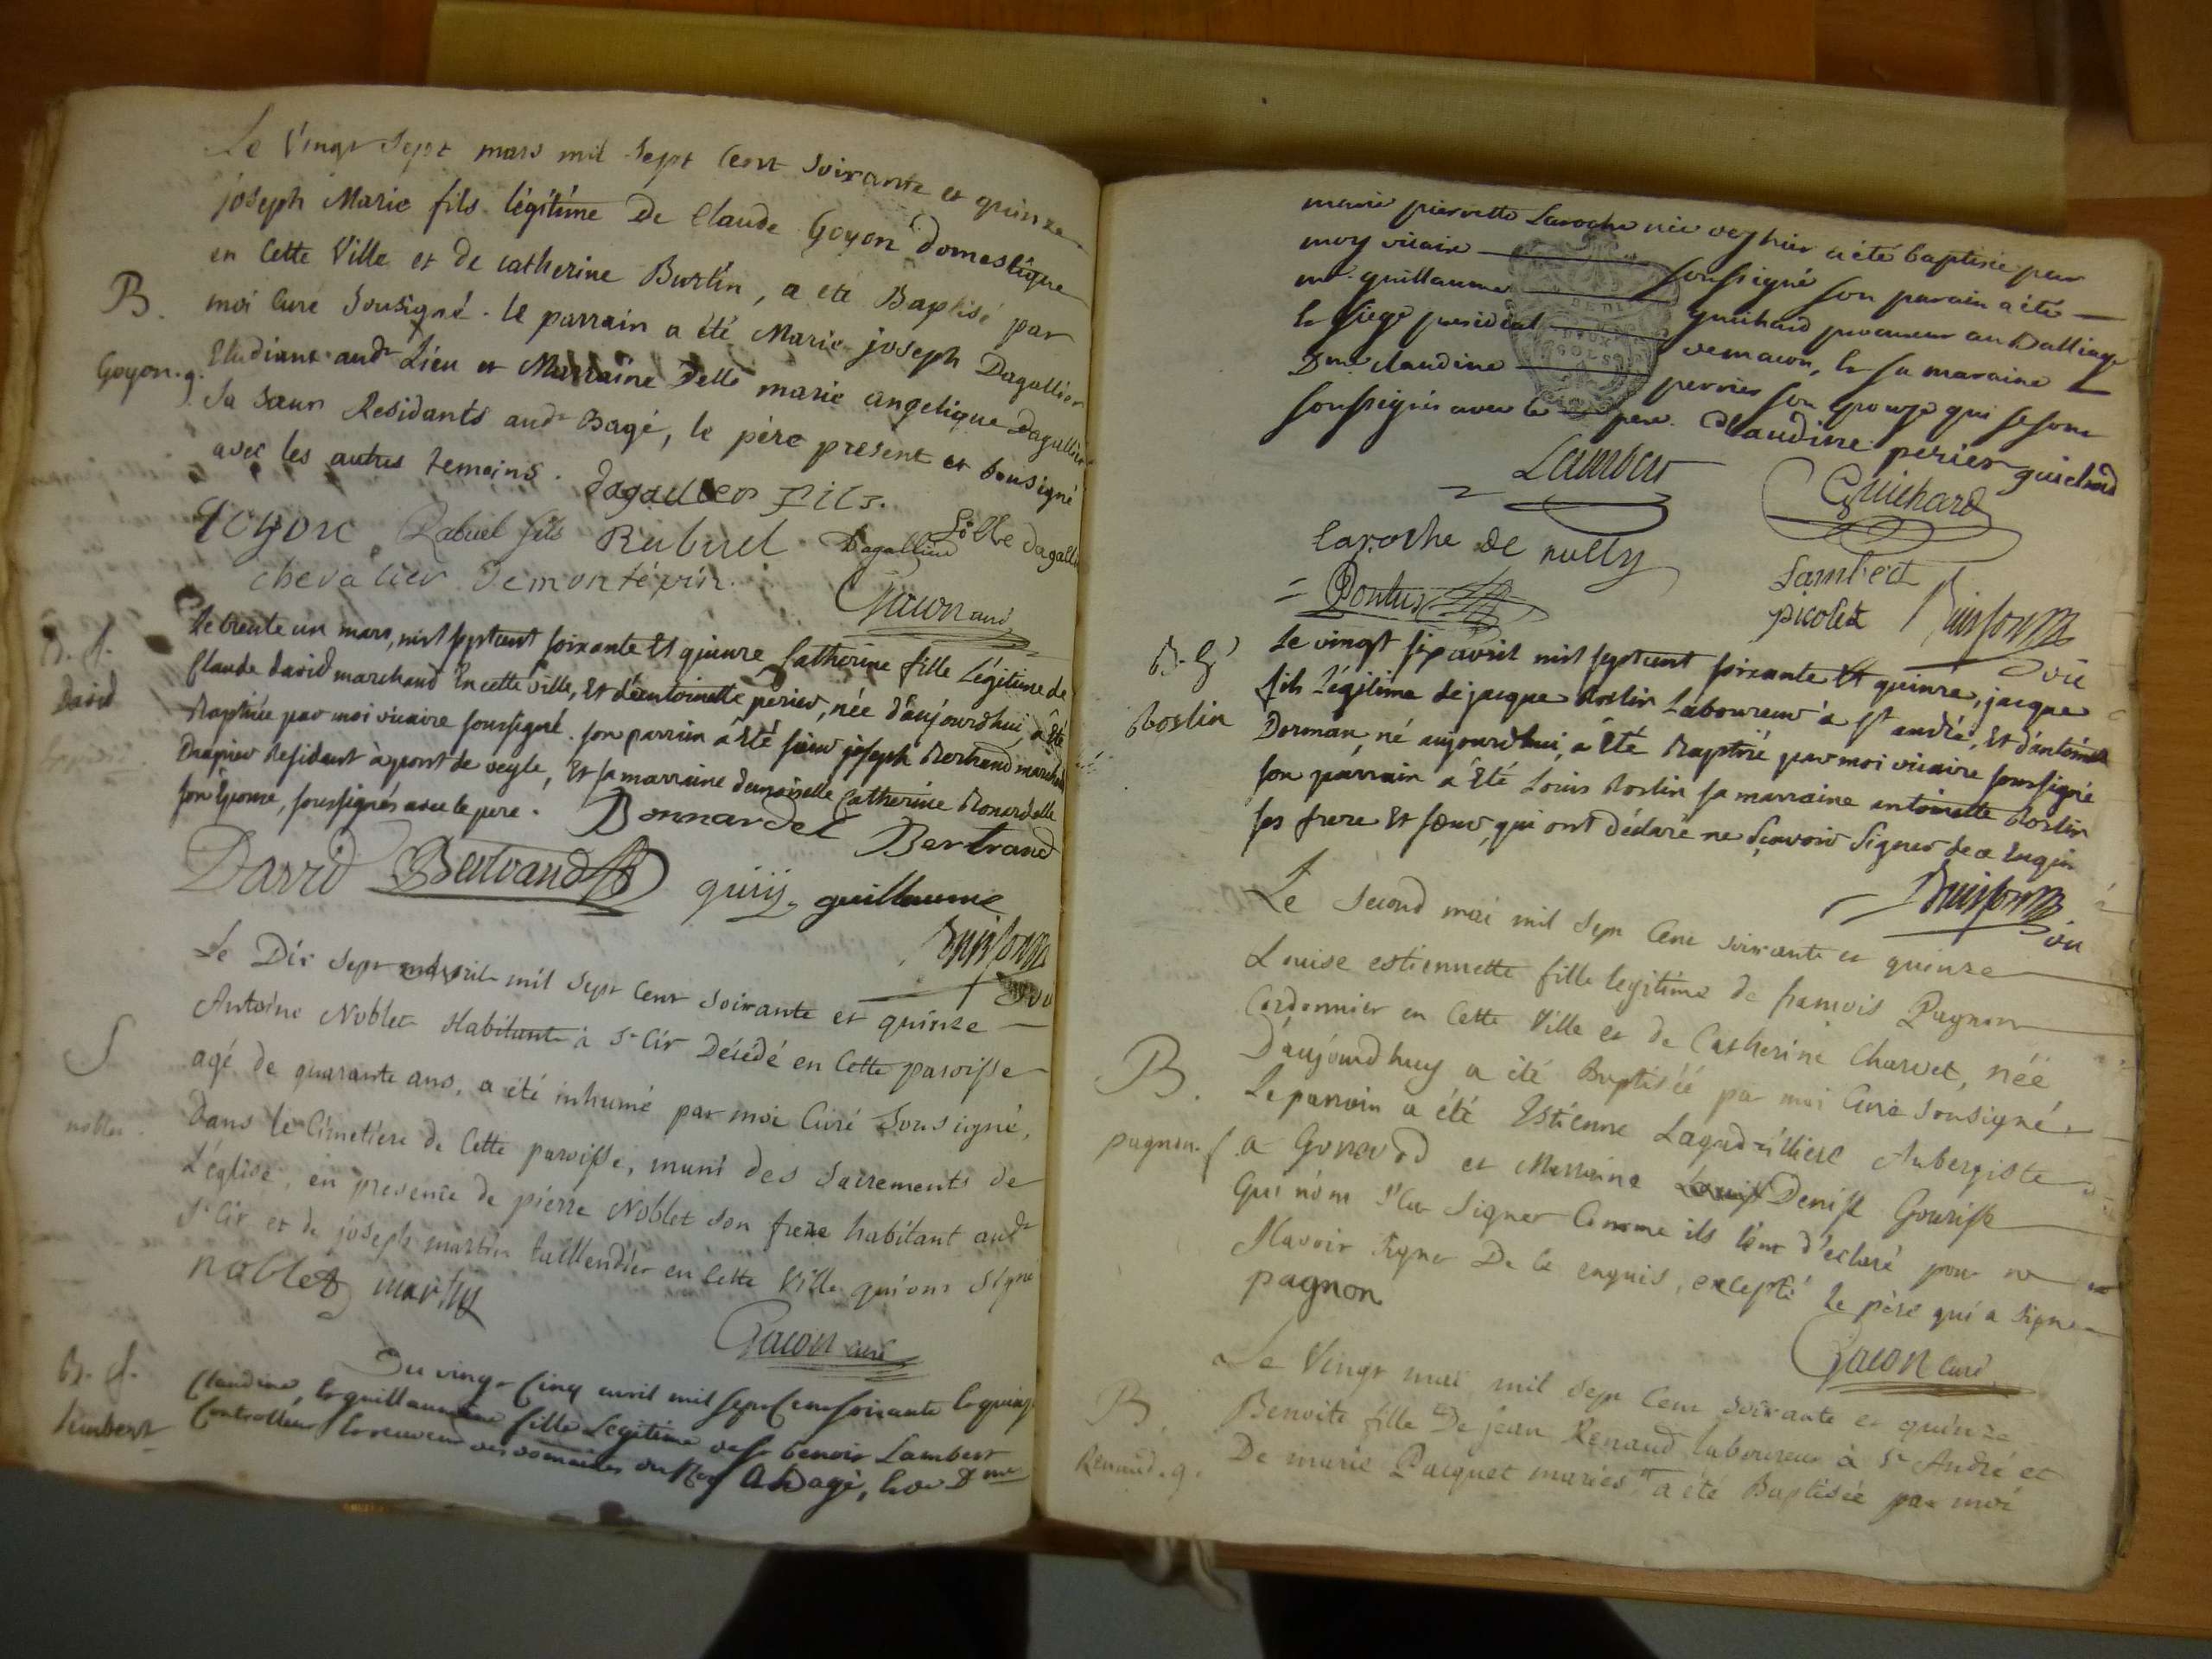 Le Vingt Sept mars mil Sept Cent Soixante et quinze
joseph Marie fils légitime De Claude Goyon domestique
en Cette Ville et de catherine Burtin, a eté Baptisé par
B.
moi Curé Sousigné. le parrain a été Marie joseph Dagallier
Goyon. g.
Etudiant audt Lieu et Marraine Delle marie angelique Dagallier
Sa Sœur Residants audt Bagé, le père présent et Sousigné
avec les autres temoins. Dagallier Fils.
Goyon Rabuel fils Rubuel Dagallier
chevalier Demontépin.
Gacon curé
Le trente un mars, mil sept cent soixante Et quinze Catherine fille Légitime de
B. f.
Claude david marchand En cette ville, Et d'antoinette perier, née d'aujourdhui, a Eté
David
Baptisée par moi vicaire soussigné. son parrain a Eté sieur joseph Bertrand marchand
Drapier Residant à pont de veyle, Et sa marraine demoiselle Catherine Bonardelle
son Epouse, soussignés avec le pere. Bonnardel
Bertrand
David Bertrand guillaume
Le Dix Sept avril mil Sept Cent Soixante et quinze
Antoine Noblet Habitant à St Cir Décédé en Cette paroisse
S
agé de quarante ans, a été inhumé par moi Curé Sousigné,
noblet.
Dans le Cimetiere de Cette paroisse, muni des Sacrements de
L'église, en presence de pierre Noblet Son frere habitant audt
St Cir et de joseph martin taillendier en Cette Ville qui ont Signé
noblet martin
Gacon curé
Du vingt Cinq avril mil sept Cent soixante et quinze
B. f.
Claudine, guillaumine fille Légitime de Sr benoit Lambert
Lambert
Controlleur et receveur des domaines du Roy A bagé, et de Dme
marie pierrette Laroche née d'hier a été baptisée par
moy vicaire soussigné son parain a été
mr. guillaume guichard procureur au Balliage
et siege presidial de macon, et sa maraine
Dme. claudine perrier son epouse qui se sont
soussignés avec le pere. Claudine perier guichard
Lambert Guichard
laroche de nully
Lambert
Pontus picolet
Le vingt six avril mil sept cent soixante Et quinze, jacque
B. g
fils Légitime de jacque Boslin Laboureur a St andré, Et d'antoinette
Boslin
Dorman, né aujourdhui, a Eté Baptisé par moi vicaire soussigné
son parrain a Eté Louis Boslin sa marraine antoinette Boslin
ses frere Et sœur, qui ont déclaré ne sçavoir signer de ce Enquis
Le Second mai mil Sept Cent soixante et quinze
Louise estiennette fille legitime de francois Pagnon
Cordonnier en Cette Ville et de Catherine Charvet, née
B.
D'aujourd'huy a été Baptisée par moi Curé Sousigné
Le parrain a été Estienne Aubergiste
pagnon. f
a Gorevod et Marraine Denise
Qui n'ont Signer Comme ils l'ont déclaré pour ne
Sçavoir Signer De ce enquis, excepté le père qui a Signé
pagnon
Gacon Curé
Le Vingt mai mil Sept Cent Soixante et quinze
B.
Benoite fille De jean Renaud, laboureur à St André et
Renaud. g.
De marie Pacquet mariés a été Baptisée par moi